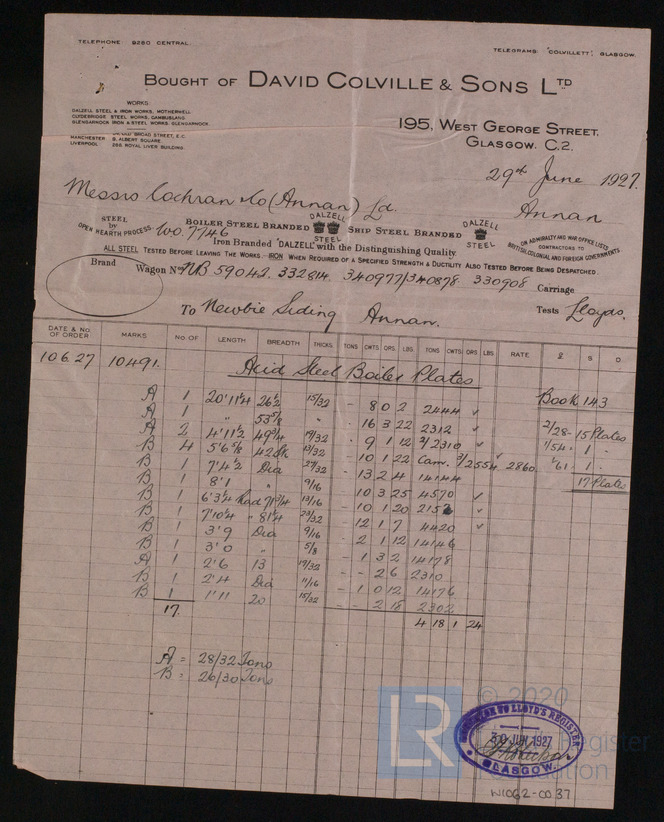 TELEPHONE 8280 CENTRAL.
TELEGRAMS "COLVILLETT", GLASGOW.
BOUGHT OF DAVID COLVILLE & SONS LTD
WORKS:
DALZELL STEEL & IRON WORKS, MOTHERWELL
CLYDEBRIDGE STEEL WORKS, CAMBUSLANG
GLENGARNOCK IRON & STEEL WORKS, GLENGARNOCK
BROAD STREET, E.C.
MANCHESTER 9, ALBERT SQUARE
LIVERPOOL 266 ROYAL LIVER BUILDING
195, WEST GEORGE STREET,
GLASGOW. C.2.
29th June 1927.
Messrs Cochran & Co (Annan) Ld.
Annan
STEEL by OPEN HEARTH PROCESS.
WO. 7746
BOILER STEEL BRANDED DALZELL STEEL SHIP STEEL BRANDED DALZELL STEEL
ON ADMIRALTY AND WAR OFFICE LISTS
CONTRACTORS TO
BRITISH, COLONIAL AND FOREIGN GOVERNMENTS
Iron Branded "DALZELL" with the Distinguishing Quality.
ALL STEEL TESTED BEFORE LEAVING THE WORKS.-IRON WHEN REQUIRED OF A SPECIFIED STRENGTH & DUCTILITY ALSO TESTED BEFORE BEING DESPATCHED.
Brand
Wagon Nos NB 59042. 332814. 340977/340878. 330908 Carriage
To Newbie Siding Annan.
Tests Lloyds.
DATE & NO. OF ORDER MARKS NO. OF LENGTH BREADTH THICKS TONS CWTS QRS LBS TONS CWTS QRS LBS RATE £ S D
10 6 27 10491. Acid Steel Boiler Plates
Book 143
A 1 20'11¼ 26½ 15/32 - 8 0 2 2444
A 1 " 53⅝ - 16 3 22 2312 2/28- 15 Plates
A 2 4'11½ 49¾ 19/32 - 9 1 12 2/2310 1/54. 1 -
B 4 5'6⅝ 13/32 - 10 1 22 Cam. 3/2554 2860 1/61 1 -
B 1 7'4½ Dia 27/32 - 13 2 4 14144 17 Plates
B 1 8'1 " 9/16 - 10 3 25 4570
B 1 6'3¾ Rad 71¾ 13/16 - 10 1 20
B 1 7'10¼ 81¼ - 12 1 7 4420
B 1 3'9 Dia 9/16 - 2 1 12 14146
B 1 3'0 " 5/8 - 1 3 2 14178
A 1 2'6 13 19/32 - - 2 6 2310
B 1 2'4 Dia 11/16 - 1 0 12 14176
B 1 1'11 20 15/32 - - 2 18 2302
17. 4 18 1 24
A = 28/32 Tons
B = 26/30 Tons
LR
© 2020
Lloyd's Register
Foundation
SURVEYOR TO LLOYD'S REGISTER
30 JUN 1927
GLASGOW.
W1062-0037